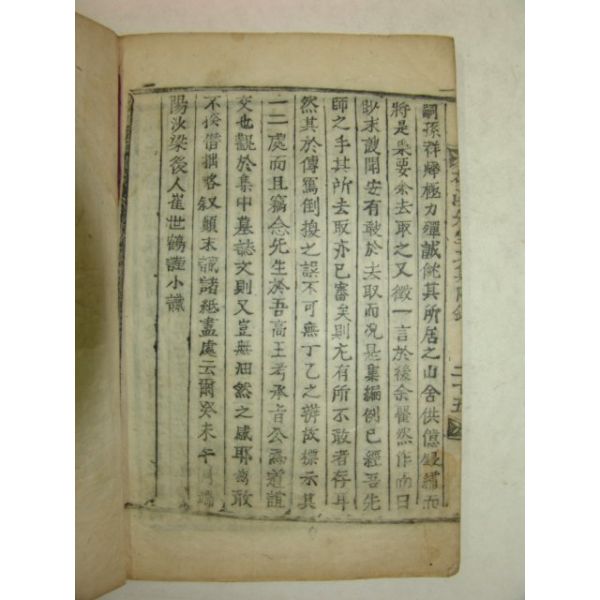 嗣孫祥鄉極力殫誠就其所居之山舍供億登繡而
將是梁要余去取之又徵一言於後余瞿然作而曰
眇末敢開安有敢於去取而況是集編例已經吾先
師之手其所去取亦已審矣則尤有所不敢者存耳
然其於傳寫倒換之誤不可無丁乙之辨故標示其
一二處而且竊念先生於吾高王考承旨公爲道誼
交也觀於集中墓誌文則又豈無油然之感耶爲敢
不揆僭拙略叙顚末識諸紙盡處云爾癸未午月端
陽汝梁後人崔世鶴謹小識
二十五